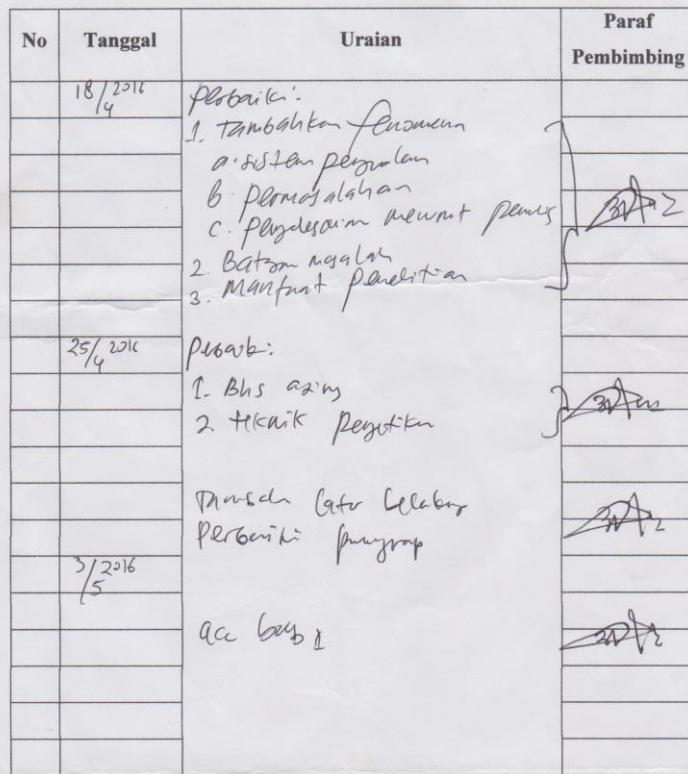 No Tanggal Uraian Paraf Pembimbing
18/4 2016 Perbaiki:
1. Tambahkan fenomena
a. sistem penjualan
b. permasalahan
c. menurut penulis
2. Batasan masalah
3. Manfaat penelitian
25/4 2016 Perbaiki:
1. Bhs asing
2. teknik pengetikan
Tambah latar belakang
Perbaiki paragrap
3/5 2016
acc bab I